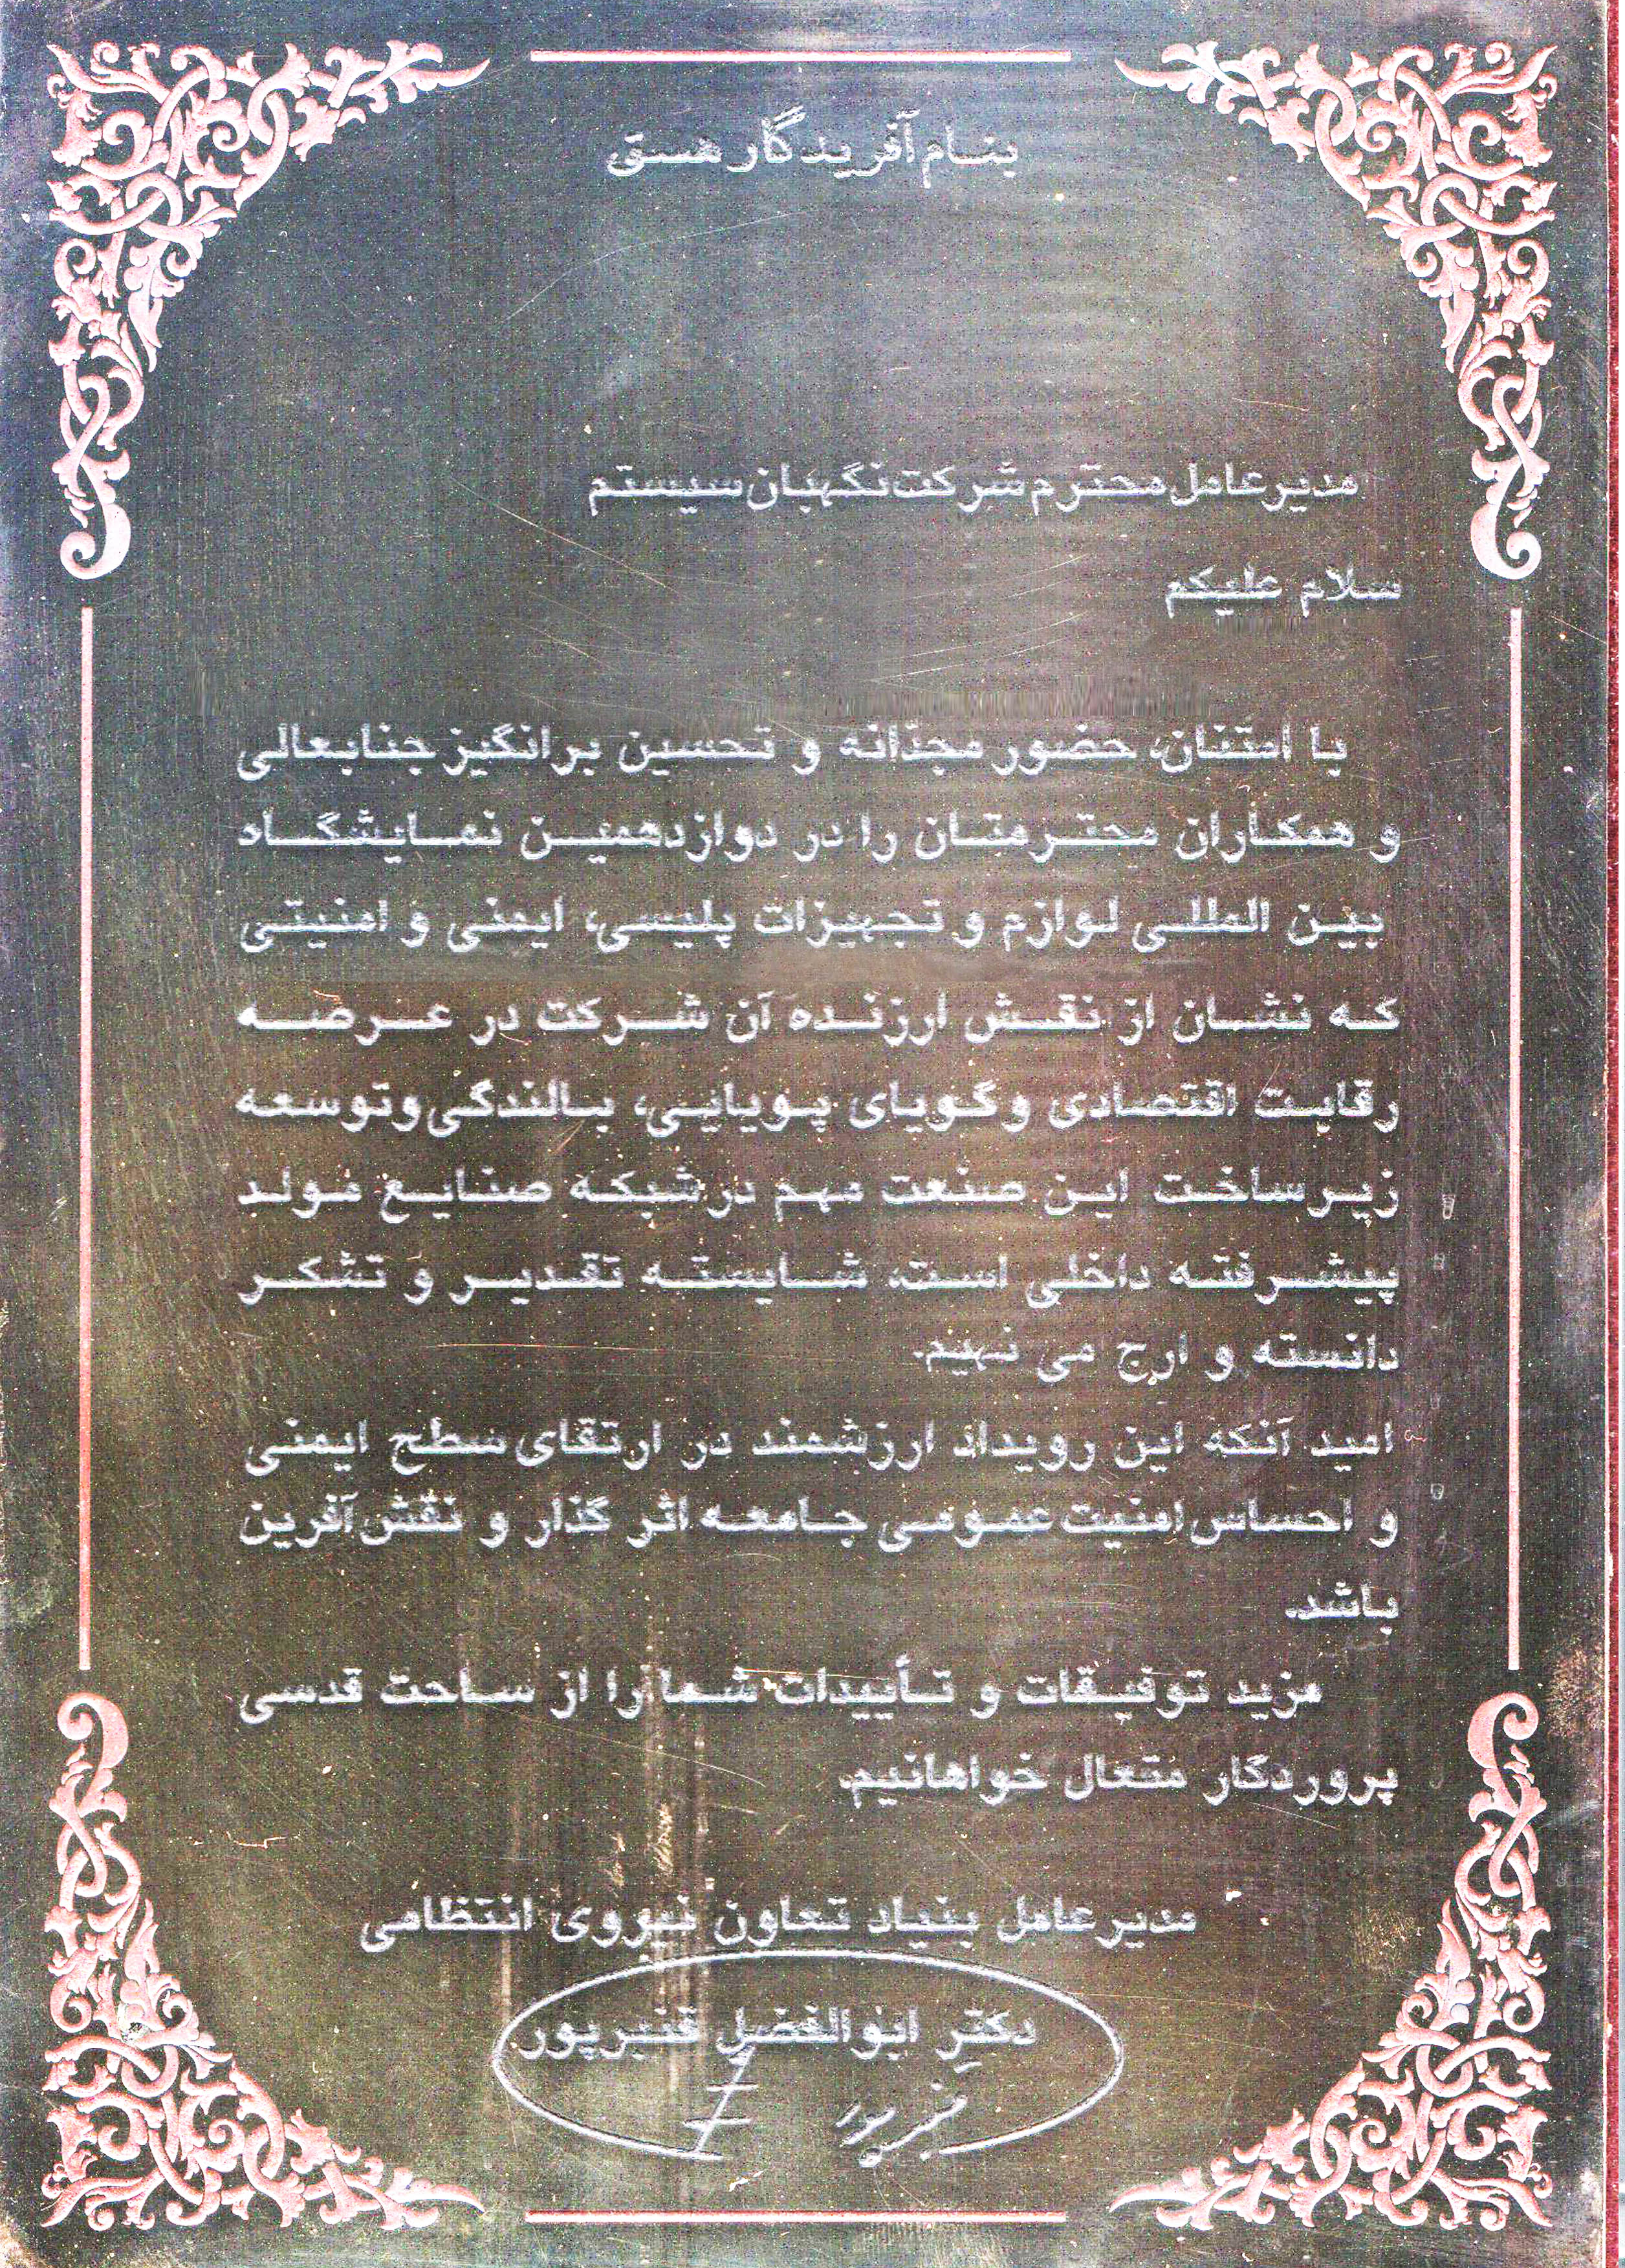 بنام آفریدگار هستی
مدیرعامل محترم شرکت نگهبان سیستم
سلام علیکم
با امتنان، حضور مجدانه و تحسین برانگیز جنابعالی
و همکاران محترمتان را در دوازدهمین نمایشگاه
بین المللی لوازم و تجهیزات پلیسی، ایمنی و امنیتی
که نشان از نقش ارزنده آن شرکت در عرصه
رقابت اقتصادی و گویای پویایی، بالندگی و توسعه
زیرساخت این صنعت مهم در شبکه صنایع مولد
پیشرفته داخلی است، شایسته تقدیر و تشکر
دانسته و ارج می نهیم.
امید آنکه این رویداد ارزشمند در ارتقای سطح ایمنی
و احساس امنیت عمومی جامعه اثر گذار و نقش آفرین
باشد.
مزید توفیقات و تأییدات شما را از ساحت قدسی
پروردگار متعال خواهانیم.
مدیرعامل بنیاد تعاون نیروی انتظامی
دکتر ابوالفضل قنبرپور